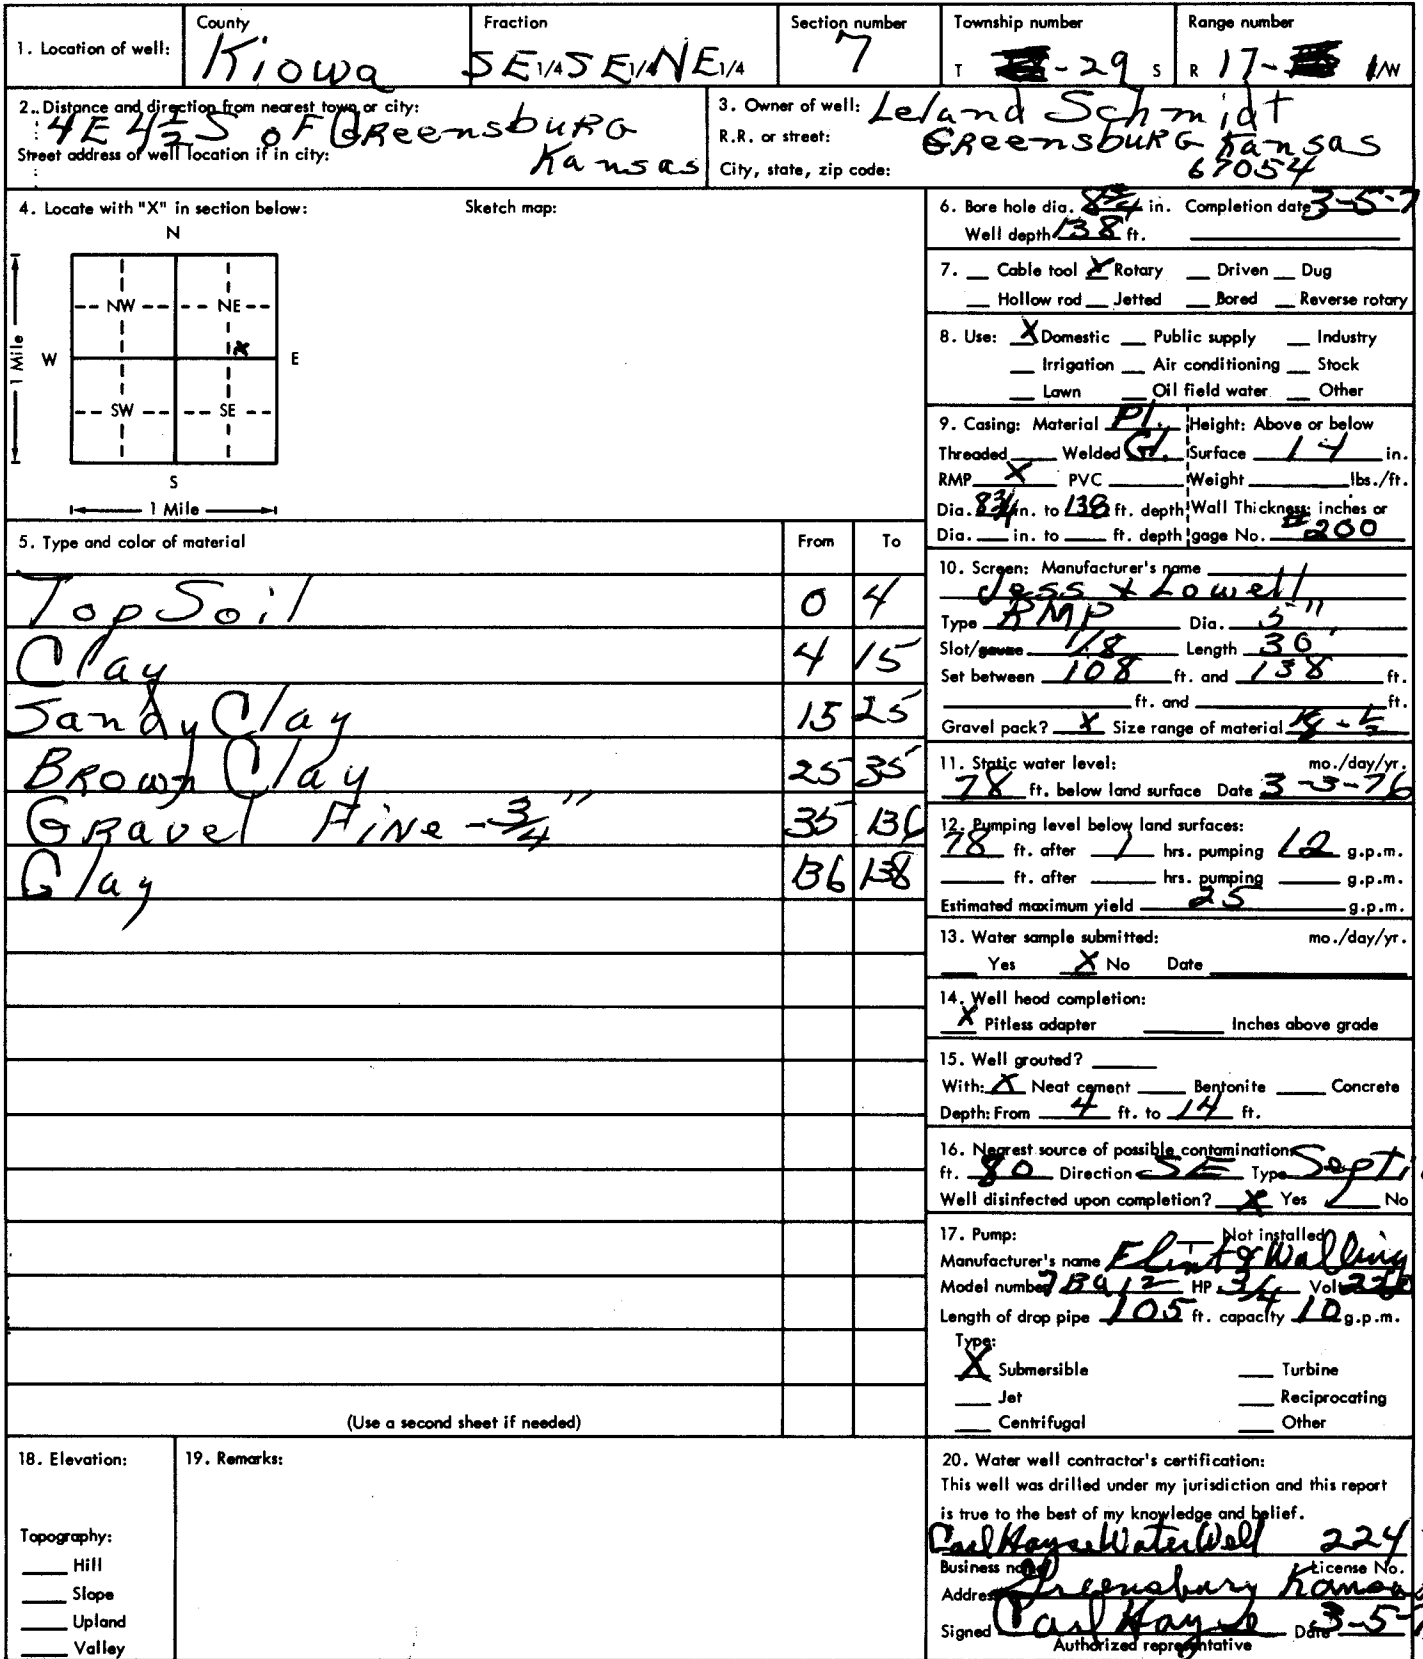 1. Location of well: County Kiowa Fraction SE 1/4 SE 1/4 NE 1/4 Section number 7 Township number T -29 S Range number R 17- /W
2. Distance and direction from nearest town or city: 4E 4½ S of Greensburg
Street address of well location if in city: Kansas
3. Owner of well: Leland Schmidt
R.R. or street: Greensburg Kansas
City, state, zip code: 67054
4. Locate with "X" in section below: Sketch map:
N
NW NE
1 Mile W X E
SW SE
S
1 Mile
5. Type and color of material From To
Top Soil 0 4
Clay 4 15
Sandy Clay 15 25
Brown Clay 25 35
Gravel Fine - 3/4" 35 136
Clay 136 138
(Use a second sheet if needed)
6. Bore hole dia. 8 3/4 in. Completion date 3-5-7
Well depth 138 ft.
7. Cable tool X Rotary Driven Dug
Hollow rod Jetted Bored Reverse rotary
8. Use: X Domestic Public supply Industry
Irrigation Air conditioning Stock
Lawn Oil field water Other
9. Casing: Material Pl. Height: Above or below
Threaded Welded Gl. Surface 14 in.
RMP X PVC Weight lbs./ft.
Dia. 8 3/4 in. to 138 ft. depth Wall Thickness: inches or
Dia. in. to ft. depth gage No. #200
10. Screen: Manufacturer's name
Jess & Lowell
Type RMP Dia. 5"
Slot/gauze 1/8 Length 30'
Set between 108 ft. and 138 ft.
ft. and ft.
Gravel pack? X Size range of material
11. Static water level: mo./day/yr.
78 ft. below land surface Date 3-3-76
12. Pumping level below land surfaces:
78 ft. after 1 hrs. pumping 12 g.p.m.
ft. after hrs. pumping g.p.m.
Estimated maximum yield 25 g.p.m.
13. Water sample submitted: mo./day/yr.
Yes X No Date
14. Well head completion:
X Pitless adapter Inches above grade
15. Well grouted?
With: X Neat cement Bentonite Concrete
Depth: From 4 ft. to 14 ft.
16. Nearest source of possible contamination:
ft. 80 Direction SE Type Septi
Well disinfected upon completion? X Yes No
17. Pump: Not installed
Manufacturer's name Flint & Walling
Model number HP 3/4 Volt
Length of drop pipe 105 ft. capacity 10 g.p.m.
Type:
X Submersible Turbine
Jet Reciprocating
Centrifugal Other
18. Elevation:
Topography:
Hill
Slope
Upland
Valley
19. Remarks:
20. Water well contractor's certification:
This well was drilled under my jurisdiction and this report
is true to the best of my knowledge and belief.
Carl Hayse Water Well 224
Business name License No.
Address Greensburg Kansas
Signed Carl Hayse Date 3-5-7
Authorized representative